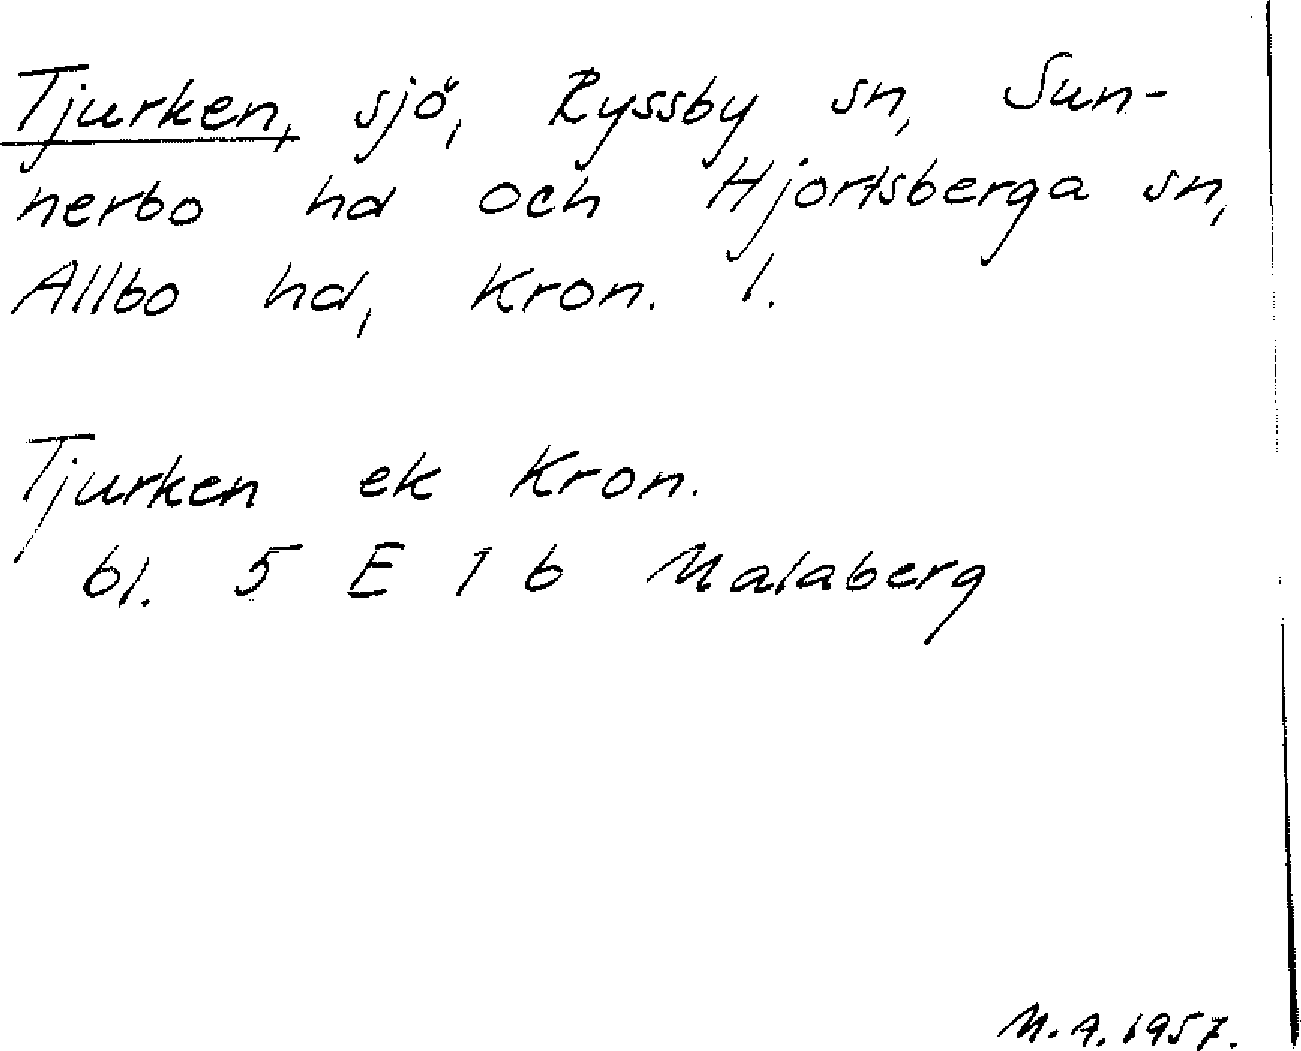 Tjurken, sjö, Ryssby sn, Sun-
nerbo hd och Hjortsberga sn,
Allbo hd, Kron. l.
Tjurken ek Kron.
bl. 5 E 1 b Malaberg
M.A. 1957.